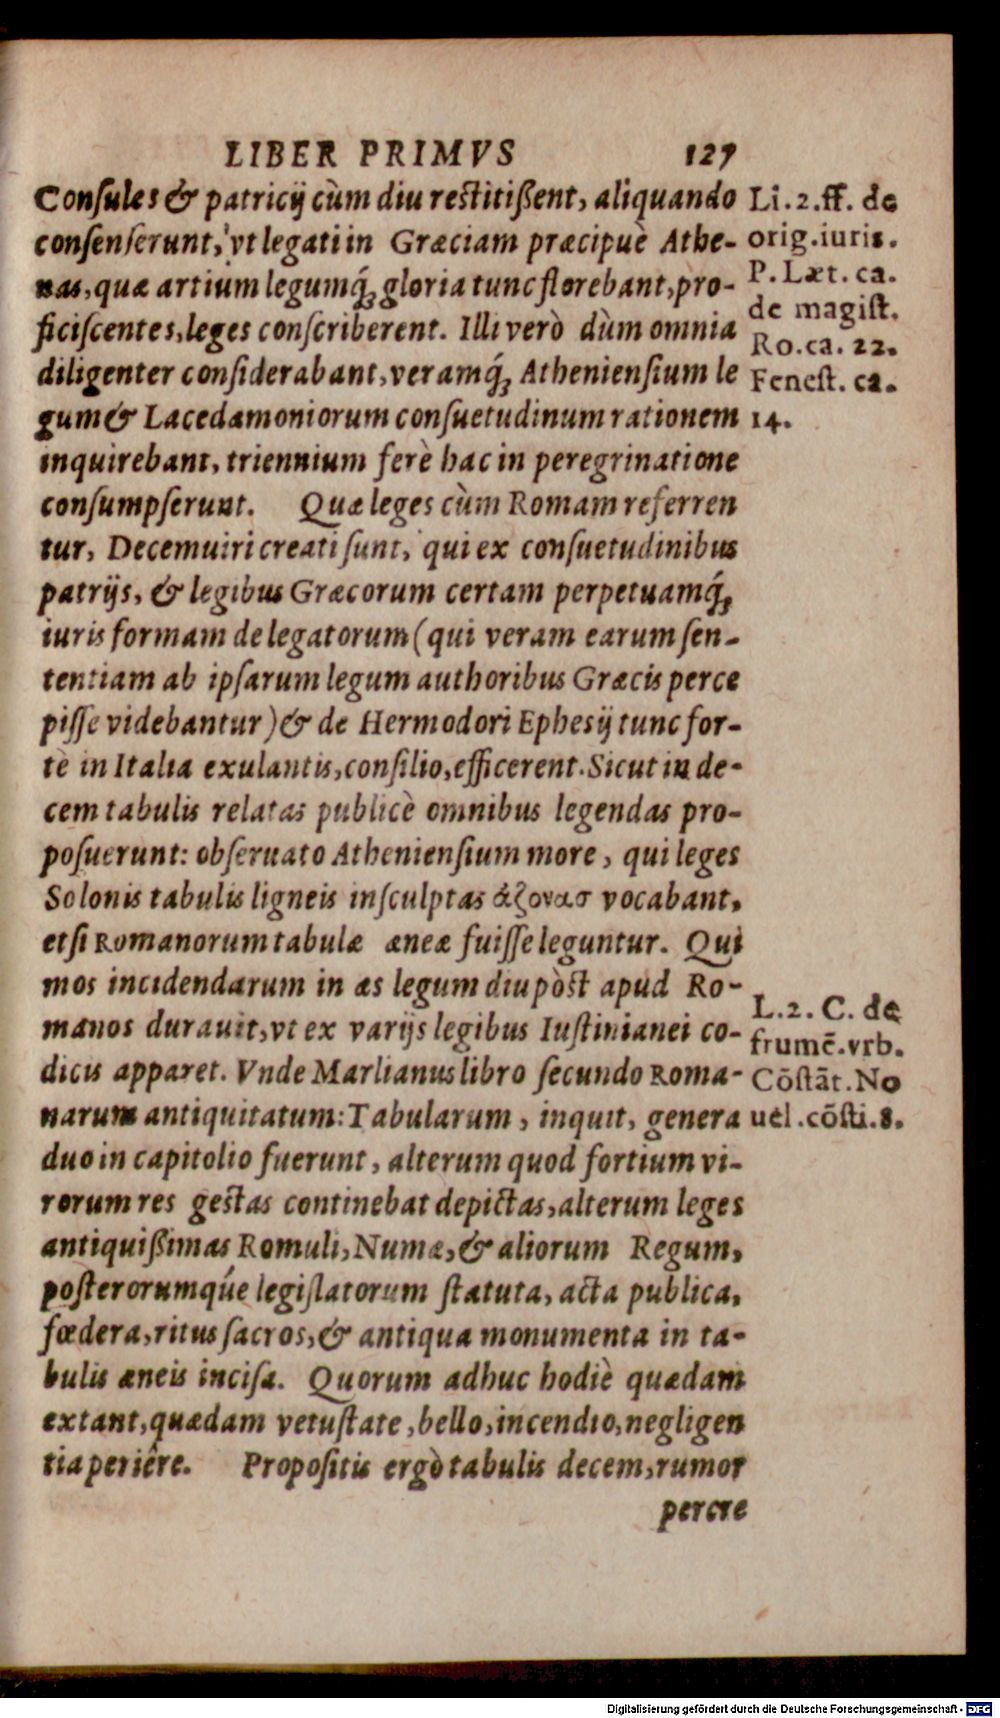 LIBER PRIMVS 127
Conſules & patricij cùm diu reſtitißent, aliquando
conſenſerunt, vt legati in Græciam præcipuè Athe-
nas, quæ artium legumq́; gloria tunc florebant, pro-
ficiſcentes, leges conſcriberent. Illi verò dùm omnia
diligenter conſiderabant, veramq́; Athenienſium le
gum & Lacedæmoniorum conſuetudinum rationem
inquirebant, triennium ferè hac in peregrinatione
conſumpſerunt. Quæ leges cùm Romam referren
tur, Decemuiri creati ſunt, qui ex conſuetudinibus
patrijs, & legibus Græcorum certam perpetuamq́;
iuris formam de legatorum (qui veram earum ſen-
tentiam ab ipſarum legum authoribus Græcis perce
piſſe videbantur) & de Hermodori Epheſij tunc for-
tè in Italia exulantis, conſilio, efficerent. Sicut in de-
cem tabulis relatas publicè omnibus legendas pro-
poſuerunt: obſeruato Athenienſium more, qui leges
Solonis tabulis ligneis inſculptas ἀζονασ vocabant,
etſi Romanorum tabulæ æneæ fuiſſe leguntur. Qui
mos incidendarum in æs legum diu pòſt apud Ro-
manos durauit, vt ex varijs legibus Iuſtinianei co-
dicis apparet. Vnde Marlianus libro ſecundo Roma-
narum antiquitatum: Tabularum, inquit, genera
duo in capitolio fuerunt, alterum quod fortium vi-
rorum res geſtas continebat depictas, alterum leges
antiquißimas Romuli, Numæ, & aliorum Regum,
poſterorumq́ue legiſlatorum ſtatuta, acta publica,
fœdera, ritus ſacros, & antiqua monumenta in ta-
bulis æneis inciſa. Quorum adhuc hodiè quædam
extant, quædam vetuſtate, bello, incendio, negligen
tia periêre. Propoſitis ergò tabulis decem, rumor
percre
Li. 2. ff. de
orig. iuris.
P. Læt. ca.
de magiſt.
Ro. ca. 22.
Feneſt. ca.
14.
L. 2. C. de
frumē. vrb.
Cōſtāt. No
uel. cōſti. 8.
Digitalisierung gefördert durch die Deutsche Forschungsgemeinschaft - DFG